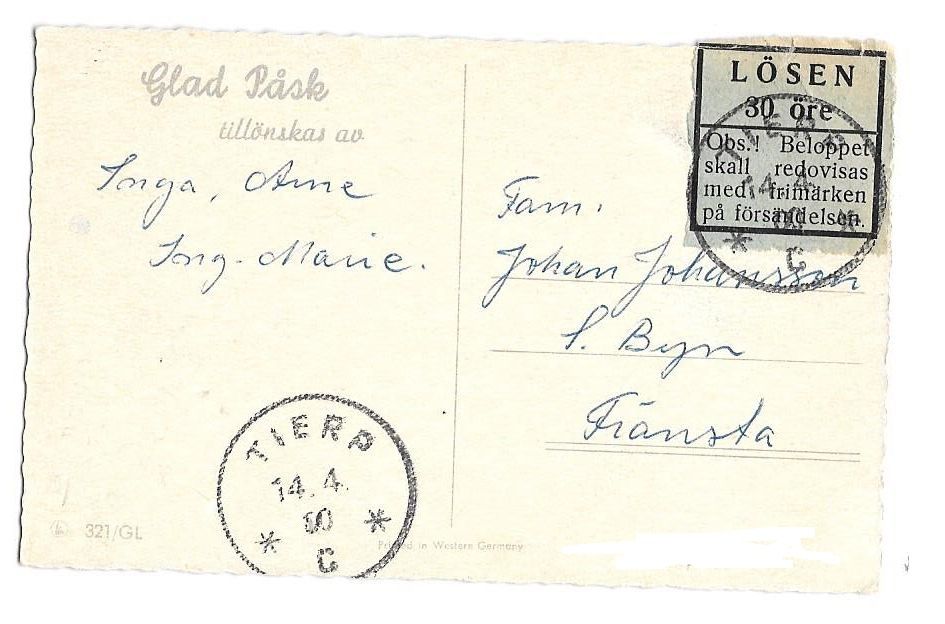 Glad Påsk
tillönskas av
Inga, Arne
Ing-Marie.
LÖSEN
30 öre
Obs.! Beloppet
skall redovisas
med frimärken
på försändelsen.
TIERP
14.4.
60
C
Fam.
Johan Johansson
S. Byn
Fränsta
TIERP
14.4.
60
C
321/GL
Printed in Western Germany